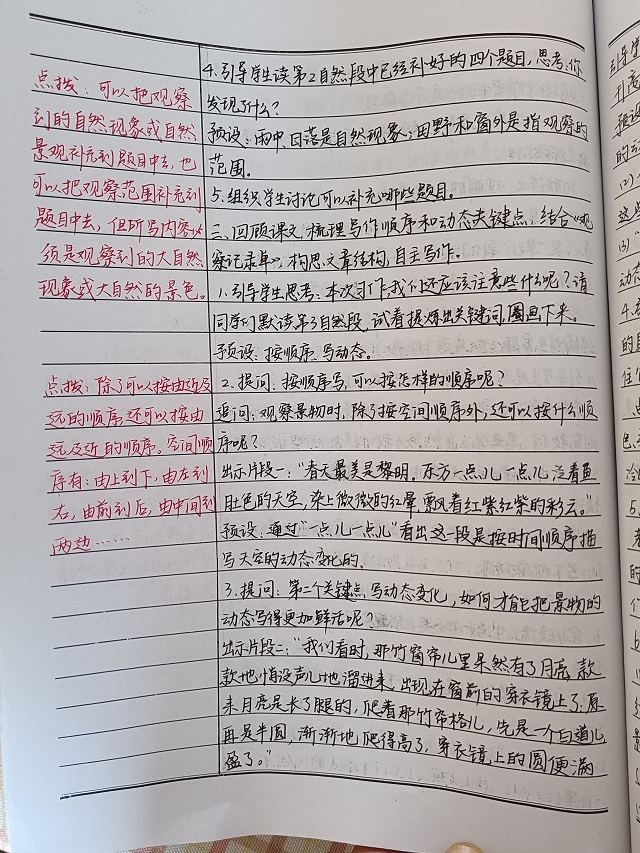 点拨：可以把观察
到的自然现象或自然
景观补充到题目中去，也
可以把观察范围补充到
题目中去，但所写内容必
须是观察到的大自然
现象或大自然的景色。
点拨：除了可以按由近及
远的顺序，还可以按由
远及近的顺序。空间顺
序有：由上到下，由左到
右，由前到后，由中间到
两边……
4.引导学生读第2自然段中已经补好的四个题目，思考：你
发现了什么？
预设：雨中、日落是自然现象；田野和窗外是指观察的
范围。
5.组织学生讨论可以补充哪些题目。
三、回顾课文，梳理写作顺序和动态关键点，结合《观
察记录单》，构思文章结构，自主写作。
1.引导学生思考：本次习作，我们还应该注意些什么呢？请
同学们默读第3自然段，试着提炼出关键词，圈画下来。
预设：按顺序、写动态。
2.提问：按顺序写，可以按怎样的顺序呢？
追问：观察景物时，除了按空间顺序外，还可以按什么顺
序呢？
出示片段一：“春天最美是黎明。东方一点儿一点儿泛着鱼
肚色的天空，染上微微的红晕，飘着红紫红紫的彩云。”
预设：通过“一点儿一点儿”看出这一段是按时间顺序描
写天空的动态变化的。
3.提问：第二个关键点，写动态变化，如何才能把景物的
动态写得更加鲜活呢？
出示片段二：“我们看时，那竹窗帘儿里果然有了月亮，款
款地，悄没声儿地溜进来，出现在窗前的穿衣镜上了：原
来月亮是长了腿的，爬着那竹帘格儿，先是一个白道儿，
再是半圆，渐渐地爬得高了，穿衣镜上的圆便满
盈了。”